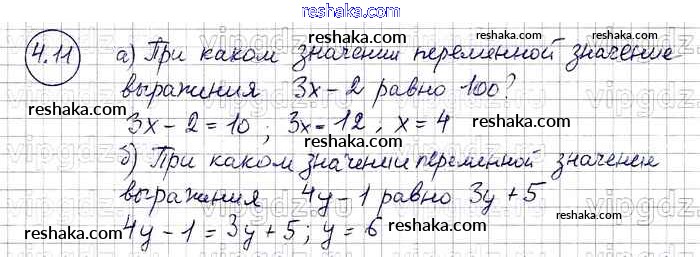 reshaka.com
4.11 а) При каком значении переменной значение
выражения 3x-2 равно 100?
3x-2=10; 3x=12, x=4
б) При каком значении переменной значение
выражения 4y-1 равно 3y+5
4y-1=3y+5; y=6
reshaka.com
reshaka.com
reshaka.com
reshaka.com
reshaka.com
reshaka.com
reshaka.com
reshaka.com
reshaka.com